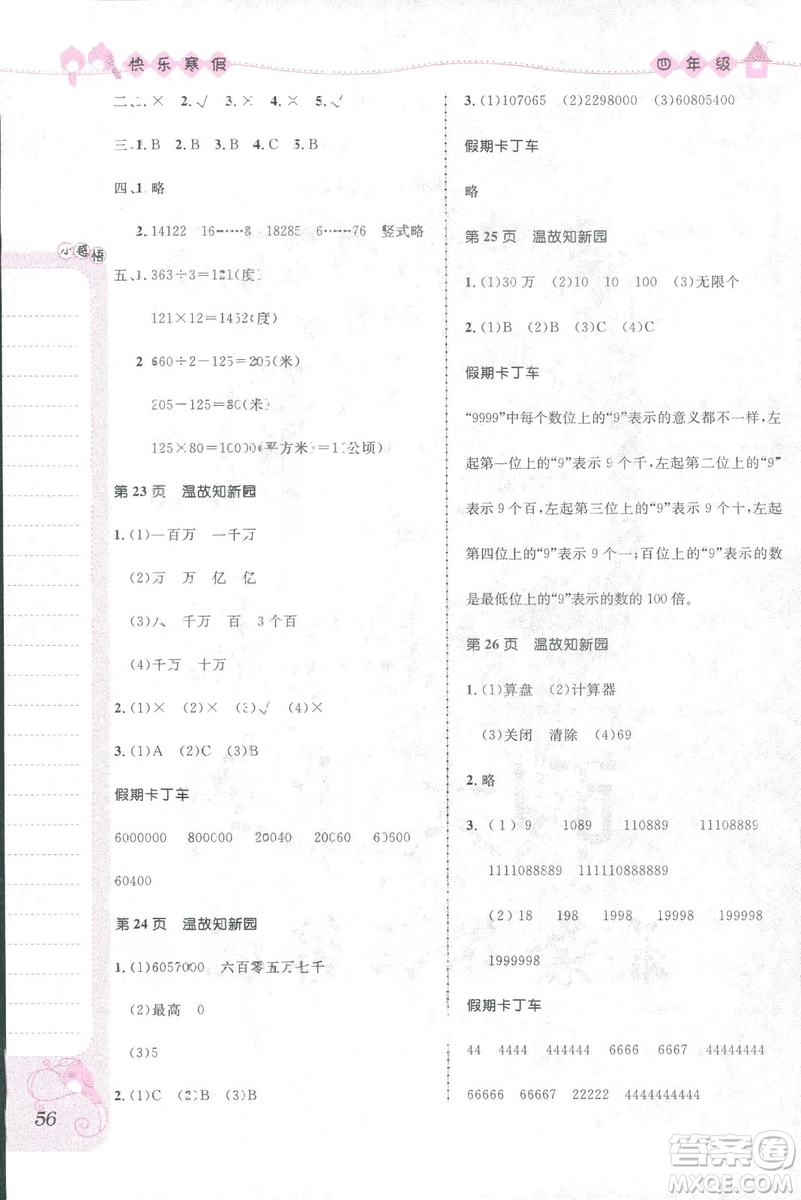 快乐寒假
四年级
二、1.× 2.√ 3.× 4.× 5.√
三、1.B 2.B 3.B 4.C 5.B
四、1.略
2.14122 16……8 18285 6……76 竖式略
小感悟
五、1.363÷3=121(度)
121×12=1452(度)
2 660÷2-125=205(米)
205-125=80(米)
125×80=10000(平方米)=1(公顷)
第23页 温故知新园
1.(1)一百万 一千万
(2)万 万 亿 亿
(3)八 千万 百 3个百
(4)千万 十万
2.(1)× (2)× (3)√ (4)×
3.(1)A (2)C (3)B
假期卡丁车
6000000 800000 20040 20060 60600
60400
第24页 温故知新园
1.(1)6057000 六百零五万七千
(2)最高 0
(3)5
2.(1)C (2)B (3)B
56
3.(1)107065 (2)2298000 (3)60805400
假期卡丁车
略
第25页 温故知新园
1.(1)30万 (2)10 (3)无限个
2.(1)B (2)B (3)C (4)C
假期卡丁车
“9999”中每个数位上的“9”表示的意义都不一样,左
起第一位上的“9”表示9个千,左起第二位上的“9”
表示9个百,左起第三位上的“9”表示9个十,左起
第四位上的“9”表示9个一;百位上的“9”表示的数
是最低位上的“9”表示的数的100倍。
第26页 温故知新园
1.(1)算盘 (2)计算器
(3)关闭 清除 (4)69
2.略
3.(1)9 1089 110889 11108889
1111088889 111110888889
(2)18 198 1998 19998 199998
1999998
假期卡丁车
44 4444 444444 6666 6667 4444444
66666 66667 22222 4444444444
答案圈
MXQE.COM